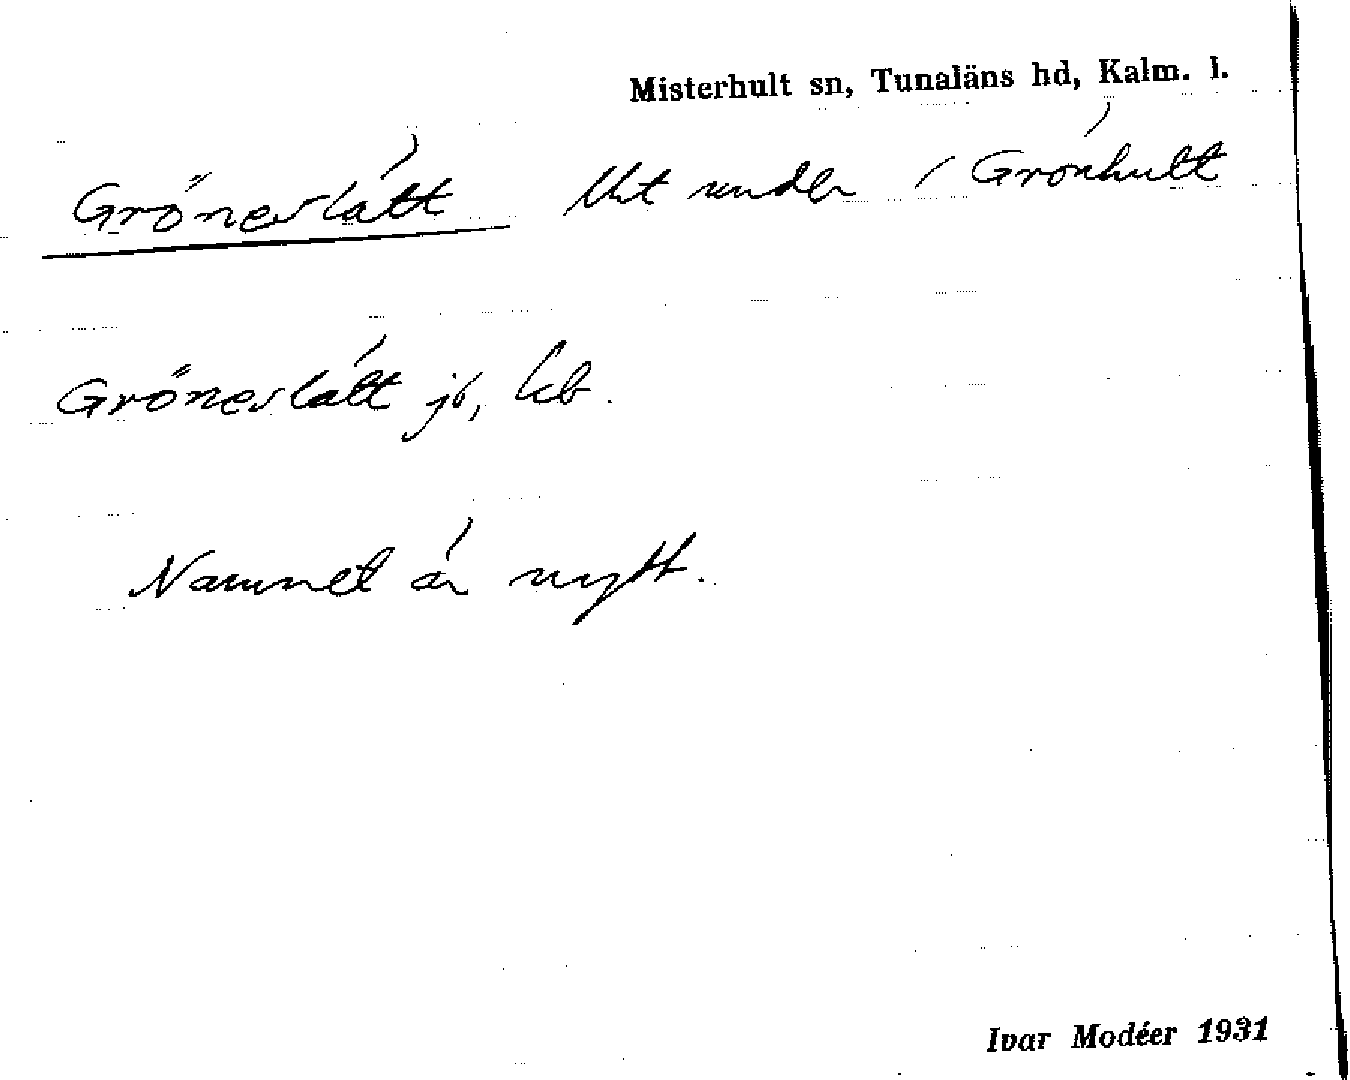 Misterhult sn, Tunaläns hd, Kalm. l.
Gröneslätt lht under / Grönhult
Gröneslätt jb, kb.
Namnet är nytt.
Ivar Modéer 1931